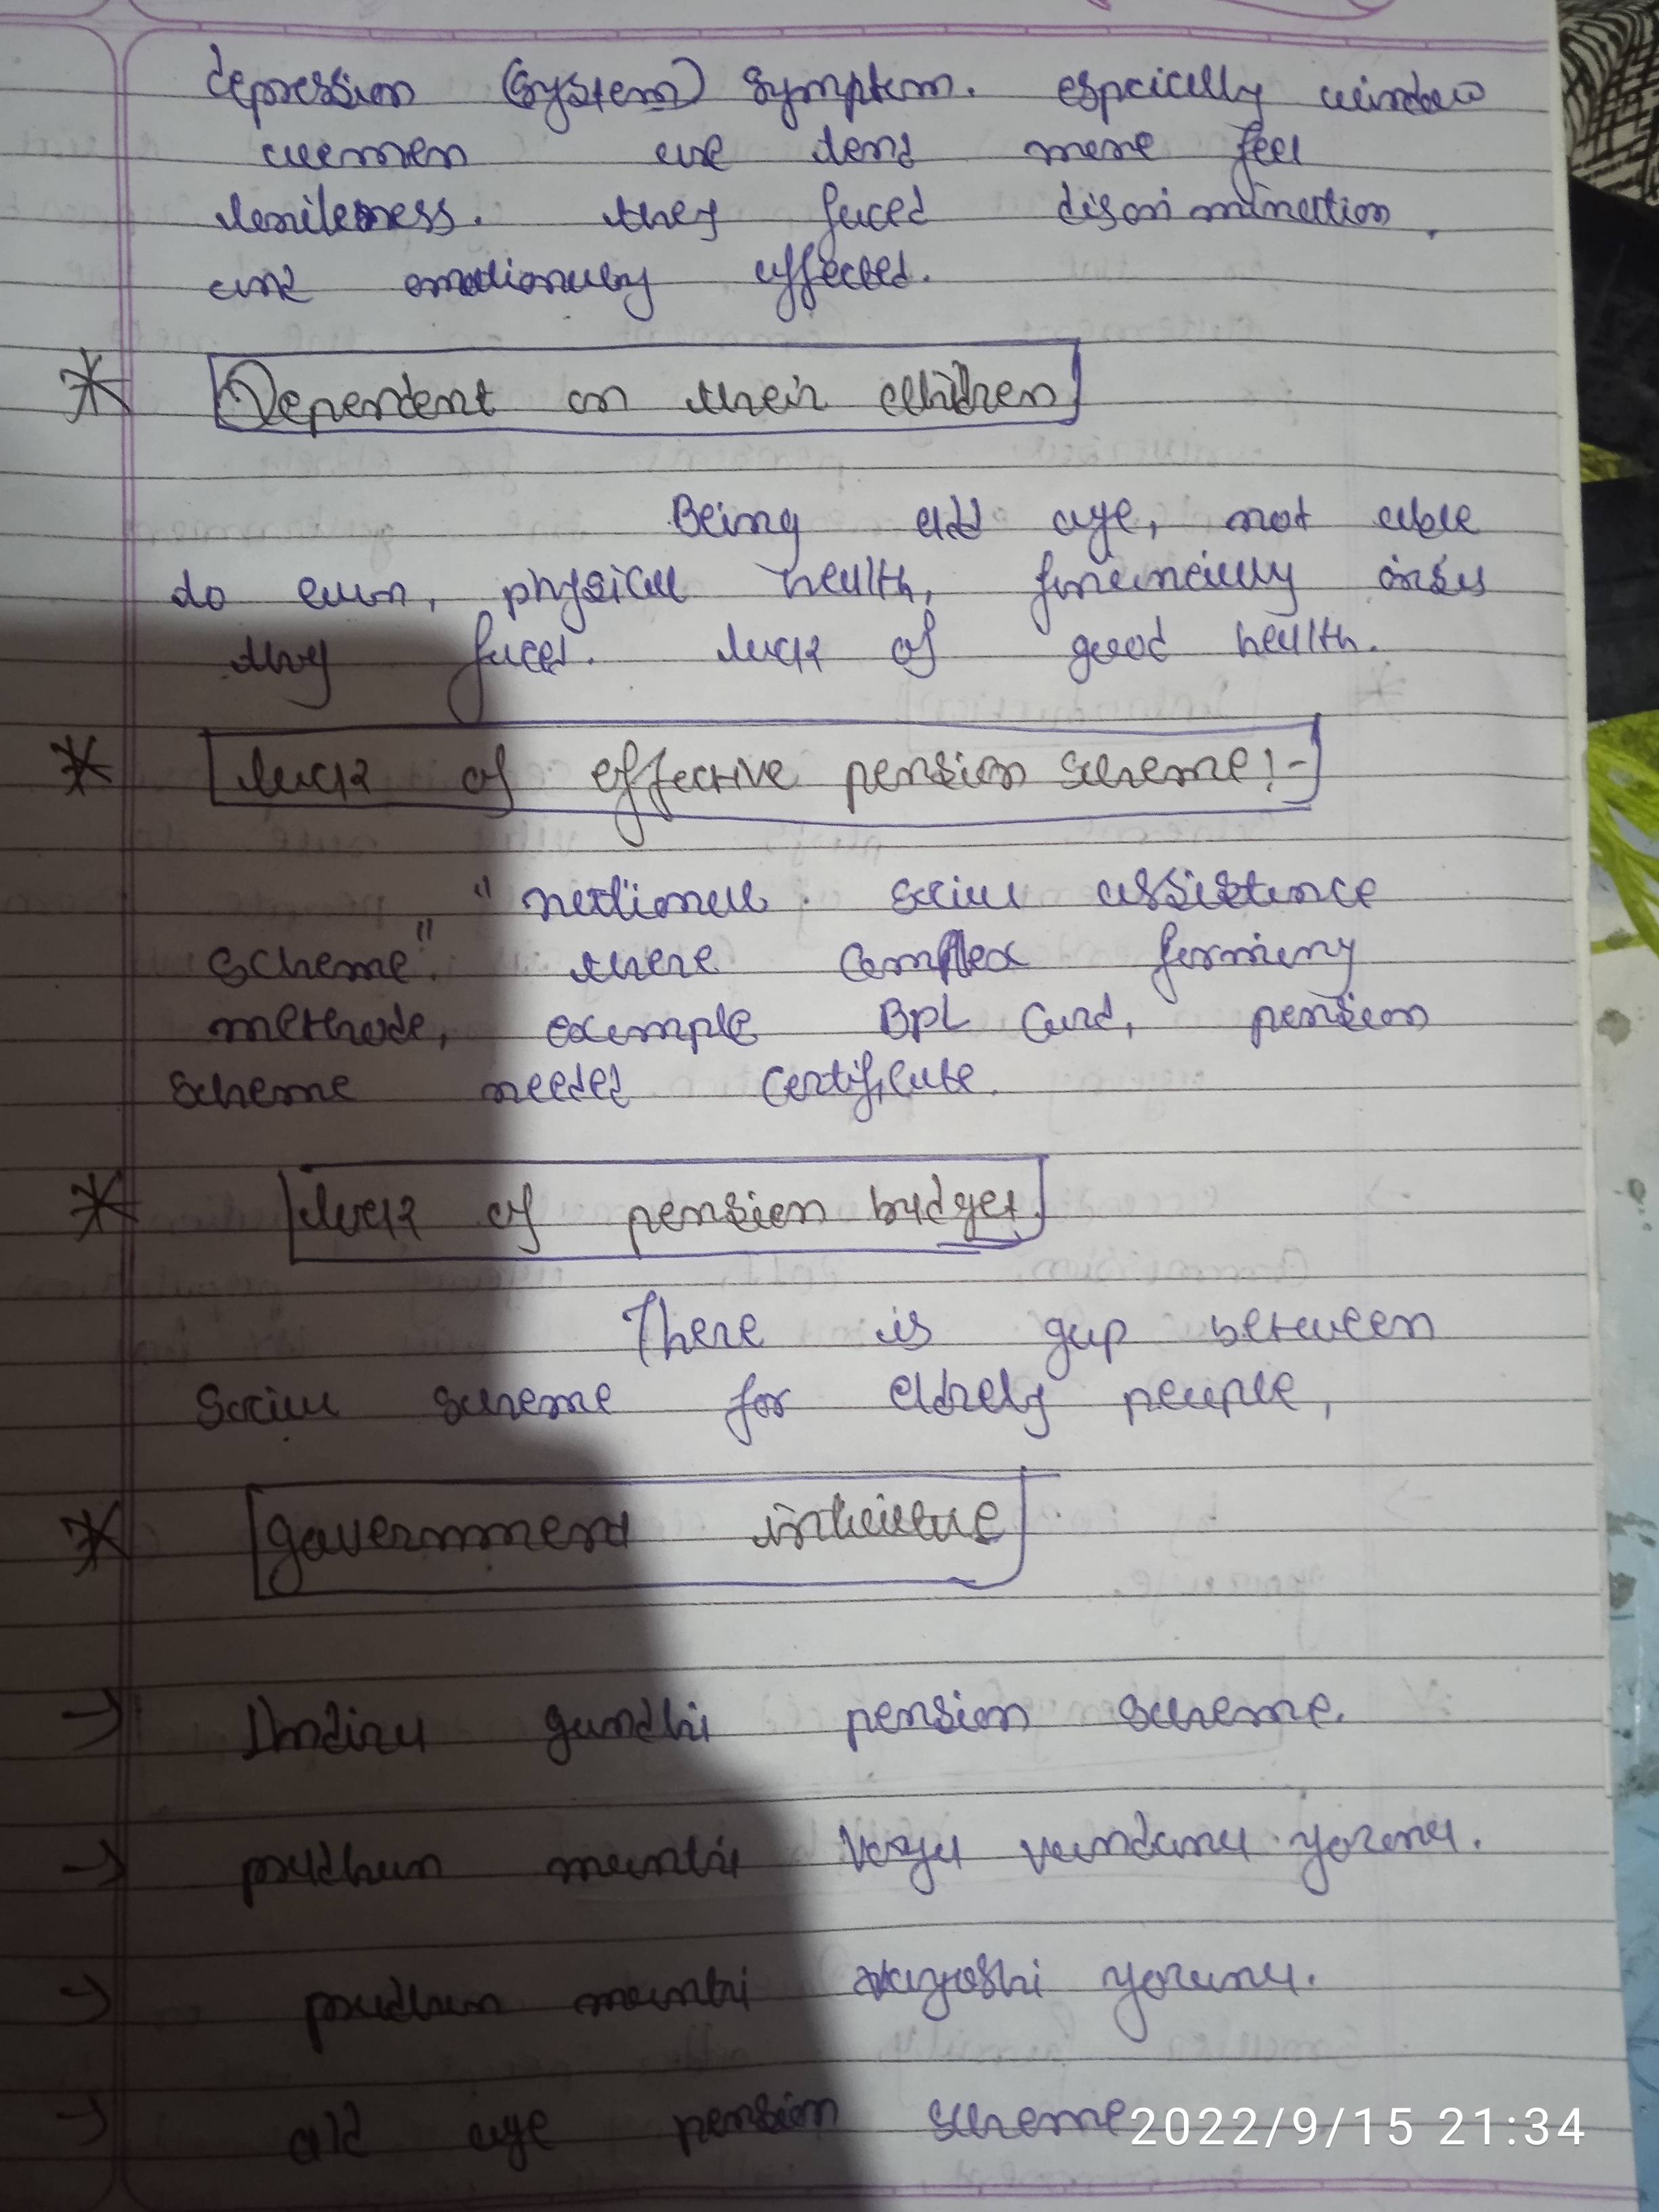 depression (system) symptom. espcicully window
women are tend more feel
lonileness. they faced discrimination,
and emotionally affected.
* Dependent on their children
Being old age, not able
do earn, physical health, financially crisis
they faced. lack of good health.
* lack of effective pension scheme:-
"national social assistance
scheme". there complex forming
methode, example BPL Card, pension
scheme needed certificate.
* lack of pension budget.
There is gap between
social scheme for eldrely people,
* government
→ Indira gandhi pension scheme.
→ pradhan mantri Vaya vandana yozana.
→ pradhan mantri yozana.
→ old age pension scheme
2022/9/15 21:34